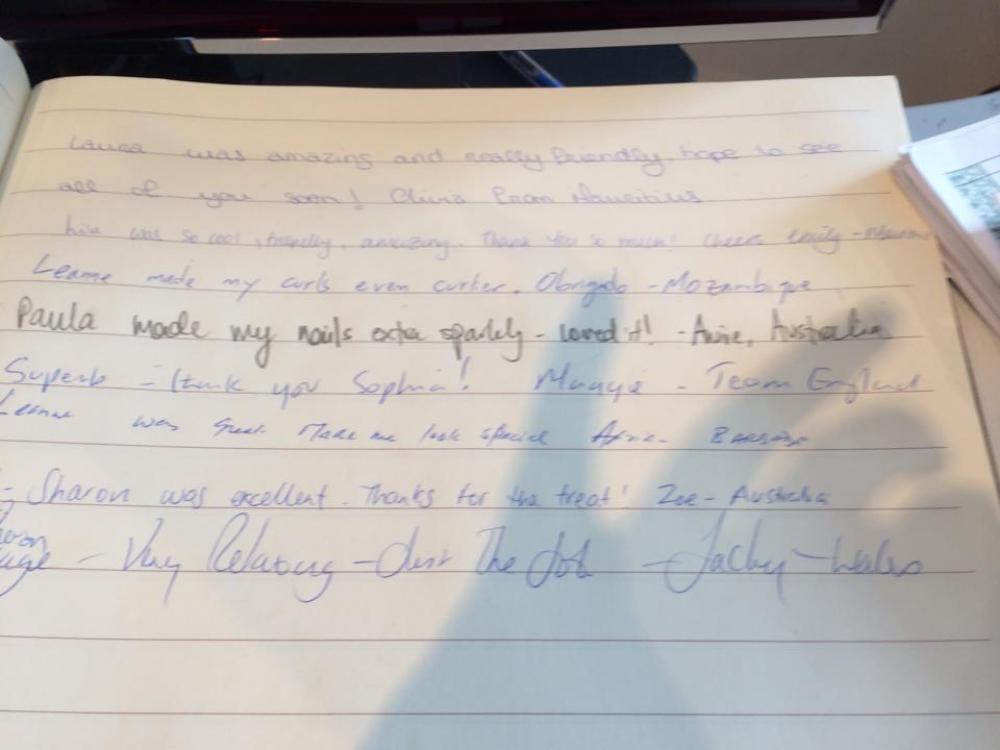 Laura was amazing and really friendly, hope to see
all of you soon! Olivia from Mauritius
was so cool, friendly, amazing. Thank you so much! Cheers Emily -
Leanne made my curls even curlier. Obrigado - Mozambique
Paula made my nails extra sparkly - loved it! - Anne, Australia
Superb - thank you Sophia! Maggie - Team England
Leanne was great. Make me look special
- Sharon was excellent. Thanks for the treat! Zoe - Australia
- Very Relaxing - Just The Job - Jacky - Wales